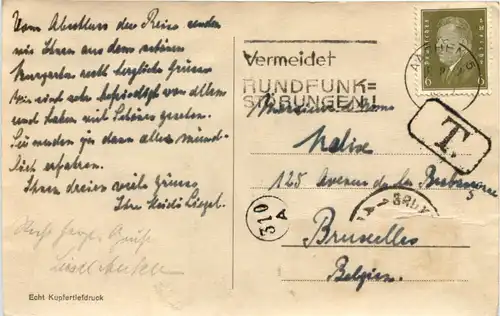 Vom Abschluss der Reise senden
wir Ihnen aus dem schönen
Burggarten recht herzliche Grüsse
Wir sind sehr befriedigt von allem
und haben viel Schönes gesehen.
Sie werden ja dann alles münd-
lich erfahren.
Ihnen dreien viele Grüsse
Ihre Heidi
Recht Grüße
Echt Kupfertiefdruck
Vermeidet
RUNDFUNK=
STÖRUNGEN!
AACHEN 5
DEUTSCHES REICH
6 6
T.
310
A
Monsieur
125 Avenue de la
Bruxelles
Belgien.